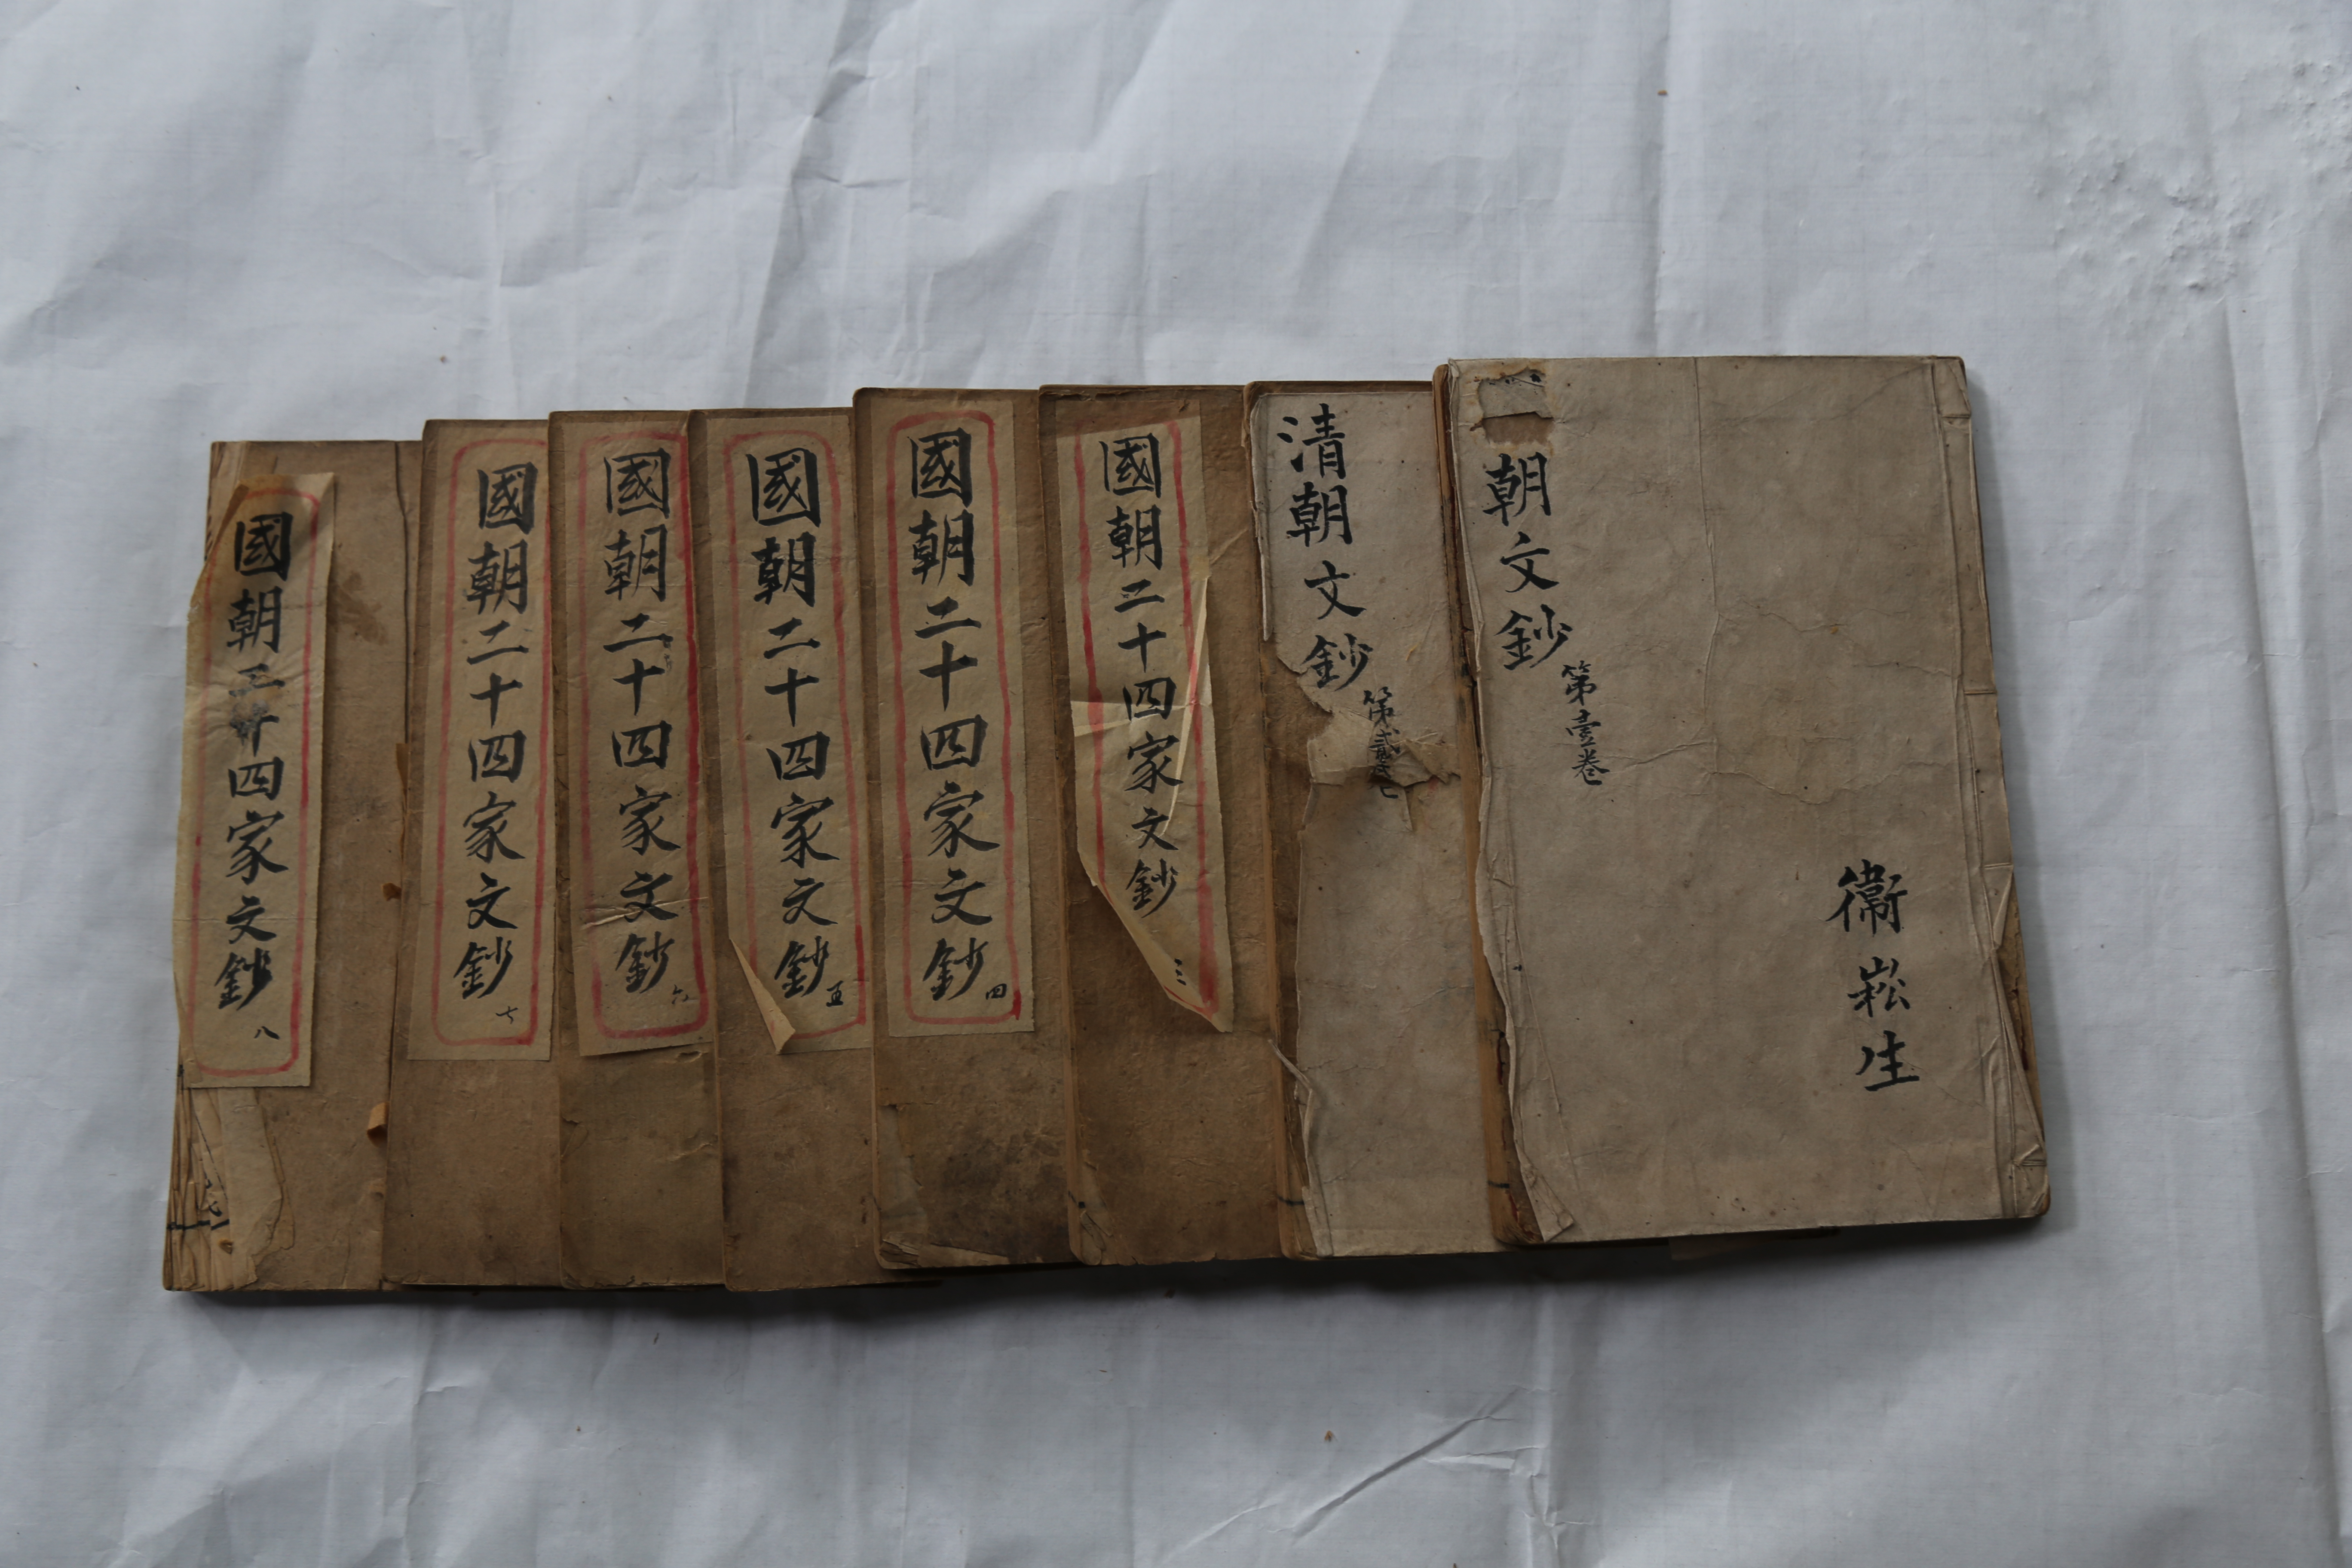 朝文鈔
第壹卷
衞崧生
清朝文鈔
第貳卷
國朝二十四家文鈔
三
國朝二十四家文鈔
四
國朝二十四家文鈔
五
國朝二十四家文鈔
六
國朝二十四家文鈔
七
國朝二十四家文鈔
八